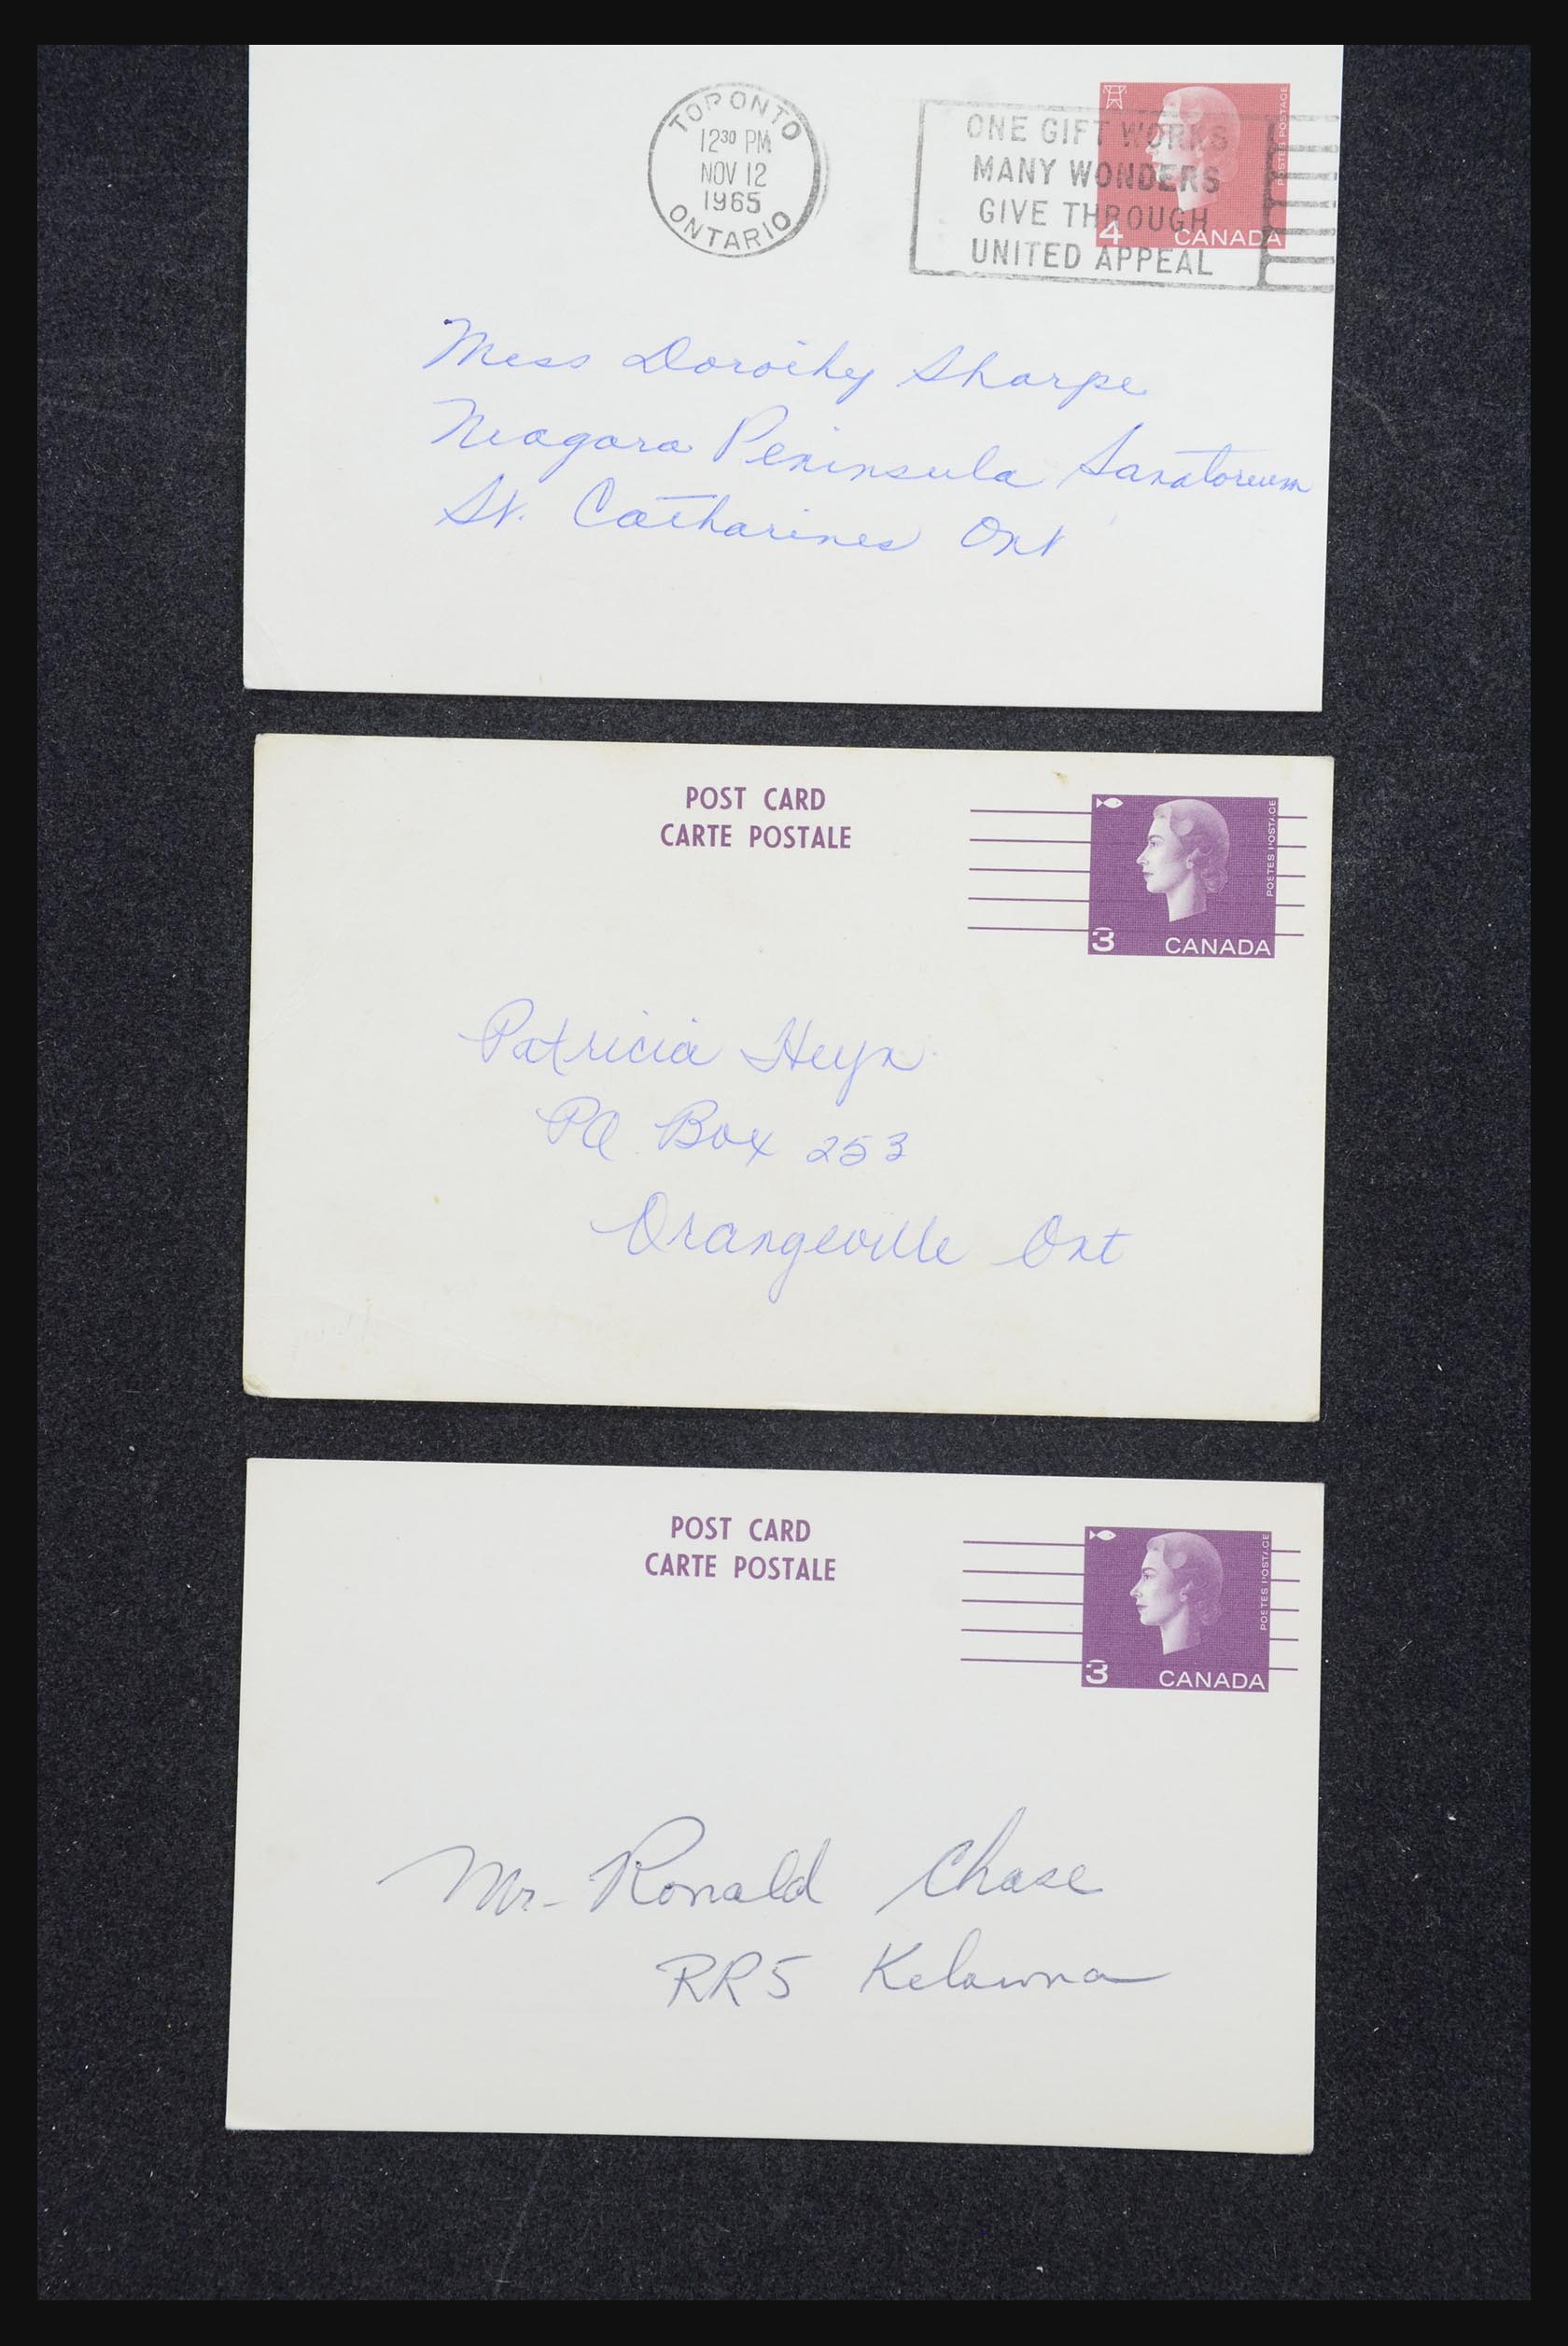 TORONTO
12³⁰ PM
NOV 12
1965
ONTARIO
ONE GIFT WORKS
MANY WONDERS
GIVE THROUGH
UNITED APPEAL
POSTES POSTAGE
4 CANADA
Miss Dorothy Sharpe
Niagara Peninsula Sanatorium
St. Catharines Ont
POST CARD
CARTE POSTALE
POSTES POSTAGE
3 CANADA
Patricia Heyn
PO Box 253
Orangeville Ont
POST CARD
CARTE POSTALE
POSTES POSTAGE
3 CANADA
Mr. Ronald Chase
RR5 Kelowna